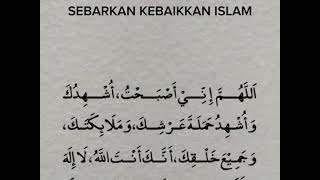 SEBARKAN KEBAIKKAN ISLAM
اَللَّهُمَّ إِنِّيْ أَصْبَحْتُ، أُشْهِدُكَ
وَأُشْهِدُ حَمَلَةَ عَرْشِكَ، وَمَلَائِكَتَكَ،
وَجَمِيْعَ خَلْقِكَ، أَنَّكَ أَنْتَ اللَّهُ، لَا إِلَهَ